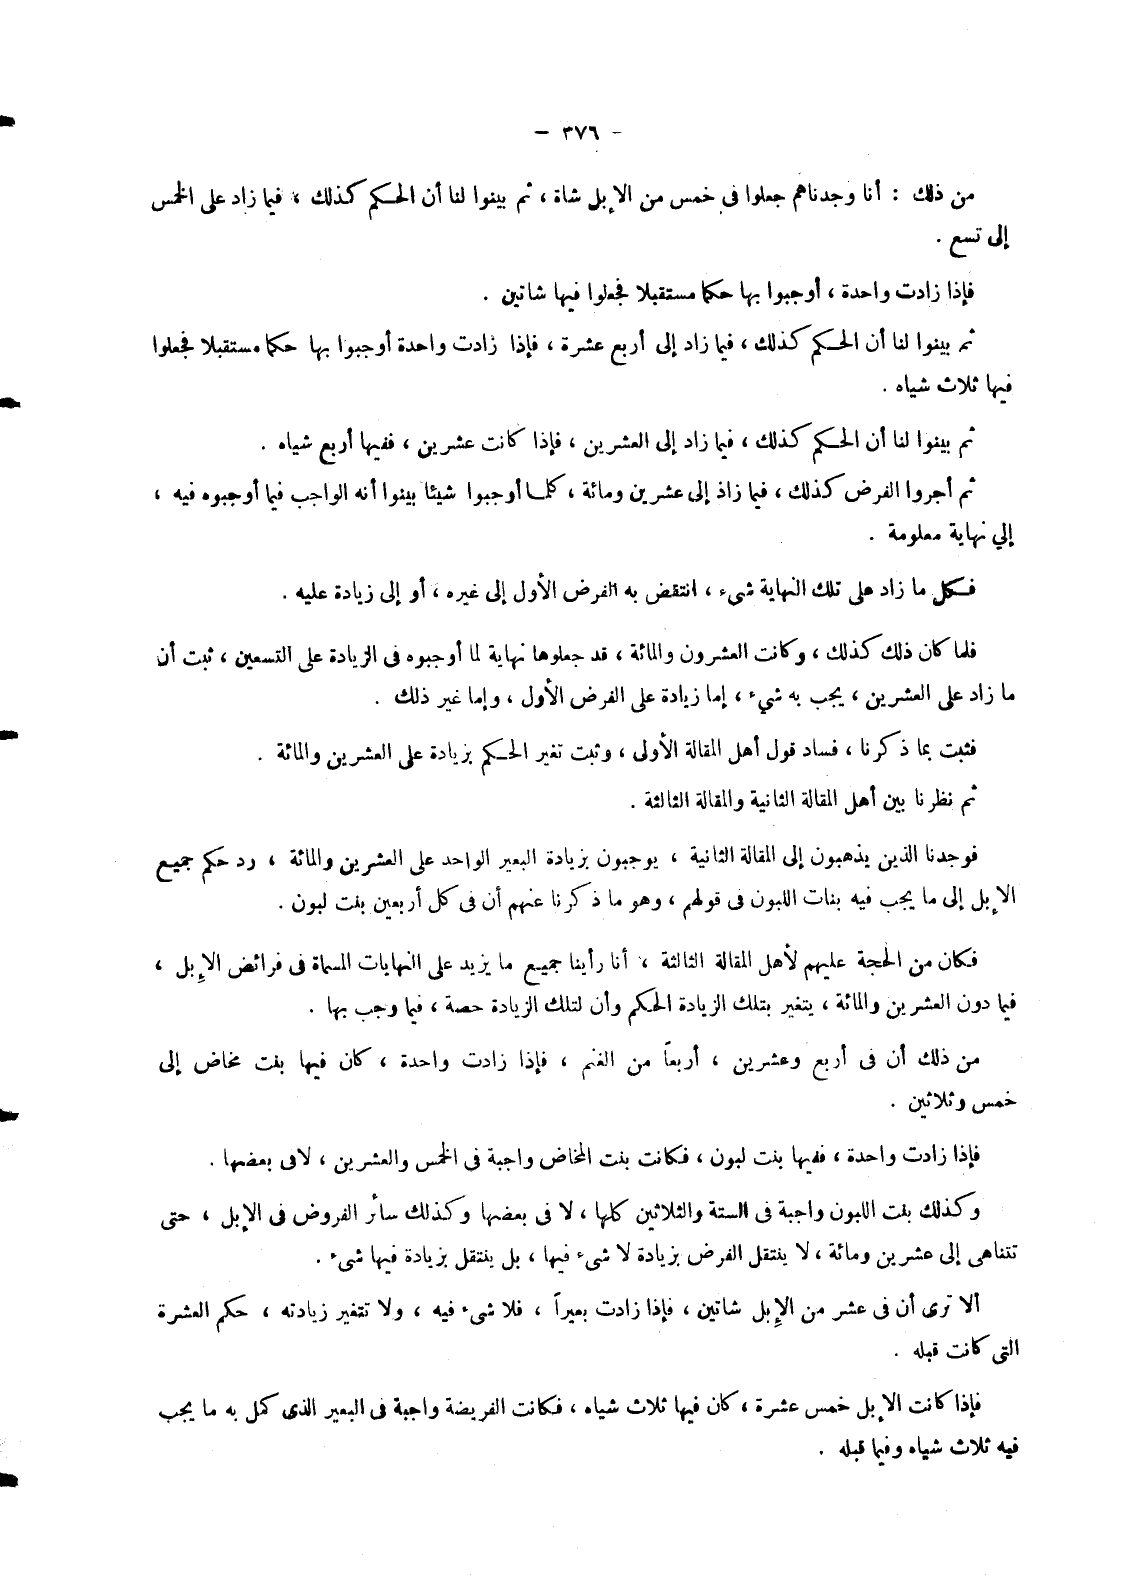 - ٣٧٦ -
من ذلك : أنا وجدناهم جعلوا فى خمس من الإبل شاة ، ثم بينوا لنا أن الحكم كذلك ، فيما زاد على الخمس
إلى تسع .
فإذا زادت واحدة ، أوجبوا بها حكما مستقبلا فجعلوا فيها شاتين .
ثم بينوا لنا أن الحكم كذلك ، فيما زاد إلى أربع عشرة ، فإذا زادت واحدة أوجبوا بها حكما مستقبلا فجعلوا
فيها ثلاث شياه .
ثم بينوا لنا أن الحكم كذلك ، فيما زاد إلى العشرين ، فإذا كانت عشرين ، ففيها أربع شياه .
ثم أجروا الفرض كذلك ، فيما زاذ إلى عشرين ومائة ، كلما أوجبوا شيئا بينوا أنه الواجب فيما أوجبوه فيه ،
إلي نهاية معلومة .
فكل ما زاد على تلك النهاية شىء ، انتقض به الفرض الأول إلى غيره ، أو إلى زيادة عليه .
فلما كان ذلك كذلك ، وكانت العشرون والمائة ، قد جعلوها نهاية لما أوجبوه فى الزيادة على التسعين ، ثبت أن
ما زاد على العشرين ، يجب به شيء ، إما زيادة على الفرض الأول ، وإما غير ذلك .
فثبت بما ذكرنا ، فساد قول أهل المقالة الأولى ، وثبت تغير الحكم بزيادة على العشرين والمائة .
ثم نظرنا بين أهل المقالة الثانية والمقالة الثالثة .
فوجدنا الذين يذهبون إلى المقالة الثانية ، يوجبون بزيادة البعير الواحد على العشرين والمائة ، رد حكم جميع
الإبل إلى ما يجب فيه بنات اللبون فى قولهم ، وهو ما ذكرنا عنهم أن فى كل أربعين بنت لبون .
فكان من الحجة عليهم لأهل المقالة الثالثة ، أنا رأينا جميع ما يزيد على النهايات المسماة فى فرائض الإبل ،
فيما دون العشرين والمائة ، يتغير بتلك الزيادة الحكم وأن لتلك الزيادة حصة ، فيما وجب بها .
من ذلك أن فى أربع وعشرين ، أربعاً من الغنم ، فإذا زادت واحدة ، كان فيها بنت مخاض إلى
خمس وثلاثين .
فإذا زادت واحدة ، ففيها بنت لبون ، فكانت بنت المخاض واجبة فى الخمس والعشرين ، لافى بعضها .
وكذلك بنت اللبون واجبة فى الستة والثلاثين كلها ، لا فى بعضها وكذلك سائر الفروض فى الإبل ، حتى
تتناهى إلى عشرين ومائة ، لا ينتقل الفرض بزيادة لا شىء فيها ، بل ينتقل بزيادة فيها شىء .
ألا ترى أن فى عشر من الإبل شاتين ، فإذا زادت بعيراً ، فلا شىء فيه ، ولا تتغير زيادته ، حكم العشرة
التى كانت قبله .
فإذا كانت الإبل خمس عشرة ، كان فيها ثلاث شياه ، فكانت الفريضة واجبة فى البعير الذى كمل به ما يجب
فيه ثلاث شياه وفيما قبله .